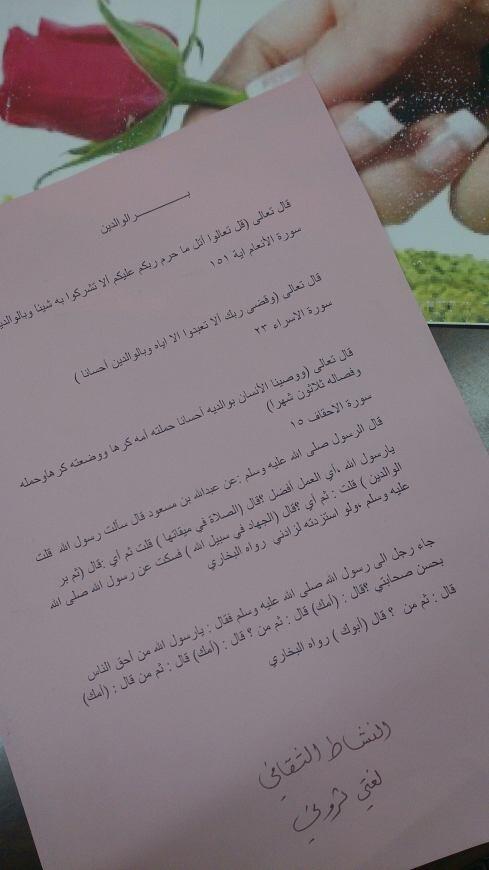 بـــــــــر الوالدين
قال تعالى (قل تعالوا أتل ما حرم ربكم عليكم ألا تشركوا به شيئا وبالوالدين
سورة الأنعام اية ١٥١
قال تعالى (وقضى ربك ألا تعبدوا الا اياه وبالوالدين أحسانا )
سورة الاسراء ٢٣
قال تعالى (ووصينا الأنسان بوالديه أحسانا حملته أمه كرها ووضعته كرهاوحمله
وفصاله ثلاثون شهرا)
سورة الاحقاف ١٥
قال الرسول صلى الله عليه وسلم :عن عبدالله بن مسعود قال سألت رسول الله قلت
يارسول الله ،أي العمل أفضل ؟قال (الصلاة في ميقاتها ) قلت ثم أي :قال (ثم بر
الوالدين ) قلت : ثم أي ؟قال (الجهاد في سبيل الله ) فسكت عن رسول الله صلى الله
عليه وسلم ،ولو استزدته لزادني رواه البخاري
جاء رجل الى رسول الله صلى الله عليه وسلم فقال : يارسول الله من أحق الناس
بحسن صحابتي ؟قال : (أمك) قال : ثم من ؟ قال : (أمك) قال : ثم من قال : (أمك)
قال : ثم من ؟ قال (أبوك ) رواه البخاري
النشاط الثقافي
لغتي ثروتي